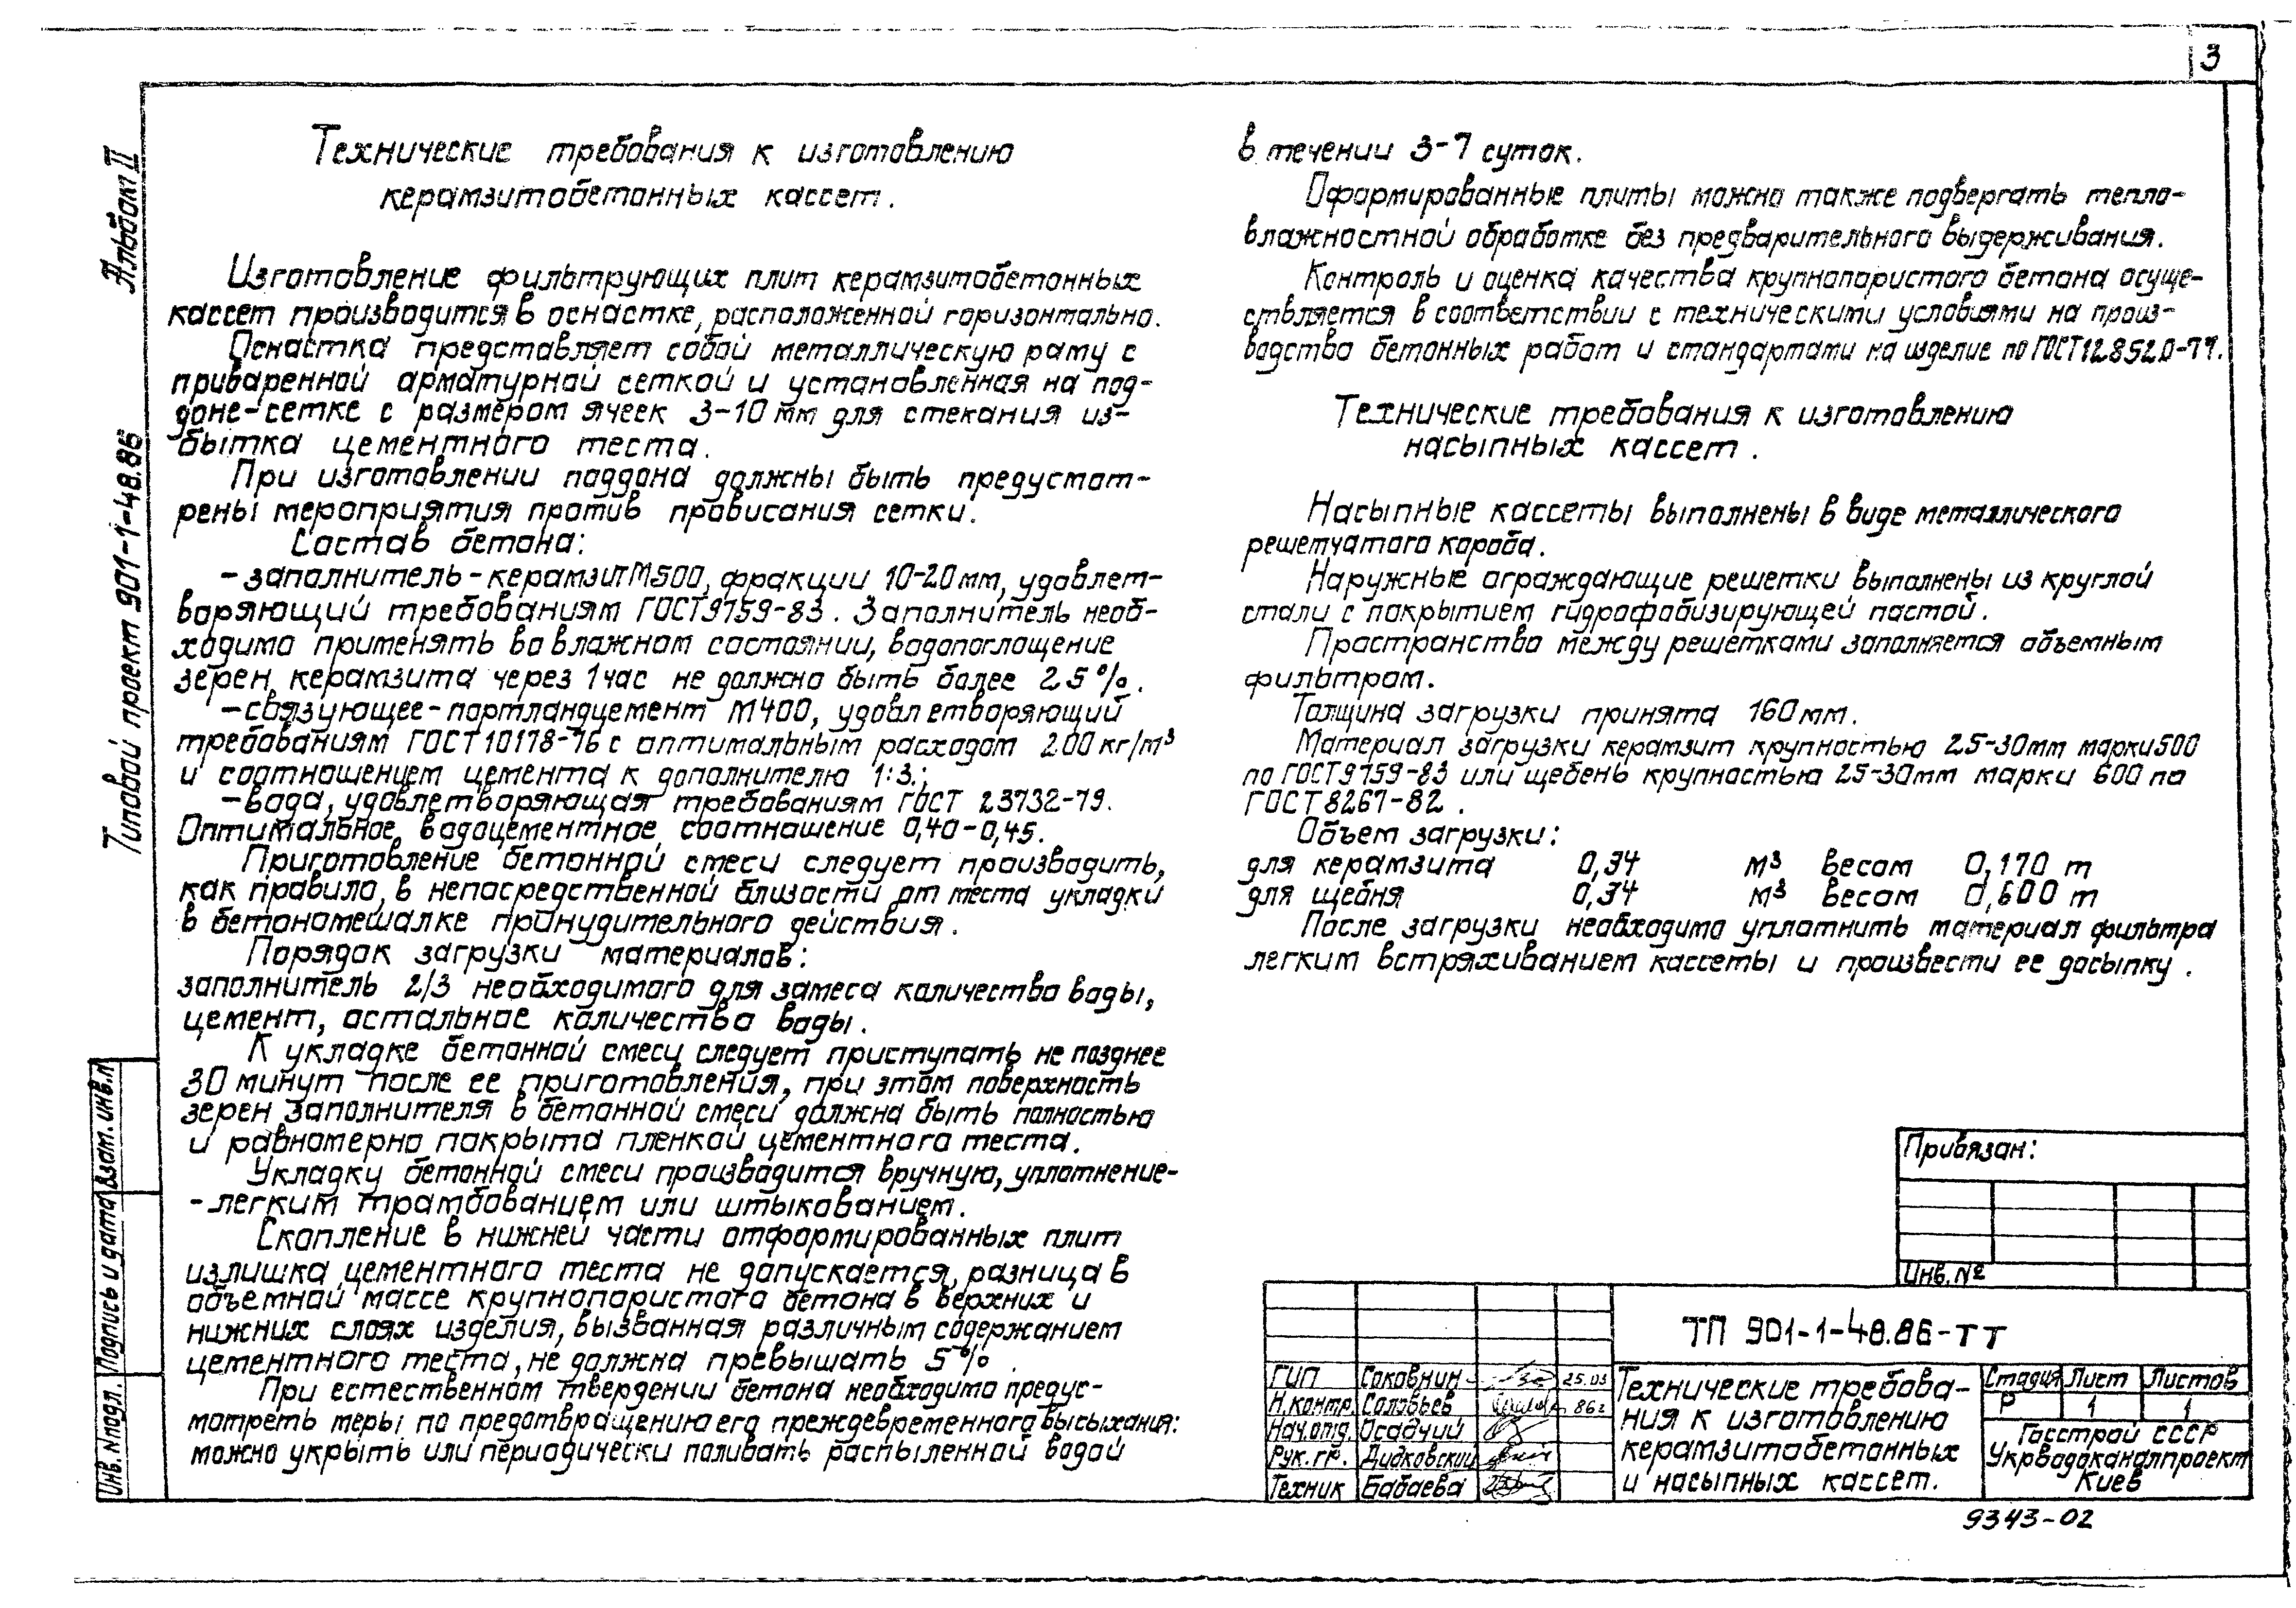 3
Альбом II
Типовой проект 901-1-48.86
Технические требования к изготовлению
керамзитобетонных кассет.
Изготовление фильтрующих плит керамзитобетонных
кассет производится в оснастке, расположенной горизонтально.
Оснастка представляет собой металлическую раму с
приваренной арматурной сеткой и установленная на под-
доне-сетке с размером ячеек 3-10 мм для стекания из-
бытка цементного теста.
При изготовлении поддона должны быть предусмот-
рены мероприятия против провисания сетки.
Состав бетона:
- заполнитель - керамзит М500, фракции 10-20 мм, удовлет-
воряющий требованиям ГОСТ 9759-83. Заполнитель необ-
ходимо применять во влажном состоянии, водопоглощение
зерен керамзита через 1 час не должно быть более 25%.
- связующее - портландцемент М400, удовлетворяющий
требованиям ГОСТ 10178-76 с оптимальным расходом 200 кг/м³
и соотношением цемента к дополнителю 1:3.;
- вода, удовлетворяющая требованиям ГОСТ 23732-79.
Оптимальное водоцементное соотношение 0,40-0,45.
Приготовление бетонной смеси следует производить,
как правило, в непосредственной близости от места укладки
в бетономешалке принудительного действия.
Порядок загрузки материалов:
заполнитель 2/3 необходимого для замеса количества воды,
цемент, остальное количество воды.
К укладке бетонной смеси следует приступать не позднее
30 минут после ее приготовления, при этом поверхность
зерен заполнителя в бетонной смеси должна быть полностью
и равномерно покрыта пленкой цементного теста.
Укладку бетонной смеси производится вручную, уплотнение-
- легким трамбованием или штыкованием.
Скопление в нижней части отформированных плит
излишка цементного теста не допускается, разница в
объемной массе крупнопористого бетона в верхних и
нижних слоях изделия, вызванная различным содержанием
цементного теста, не должна превышать 5%.
При естественном твердении бетона необходимо предус-
мотреть меры по предотвращению его преждевременного высыхания:
можно укрыть или периодически поливать распыленной водой
в течении 3-7 суток.
Оформированные плиты можно также подвергать тепло-
влажностной обработке без предварительного выдерживания.
Контроль и оценка качества крупнопористого бетона осуще-
ствляется в соответствии с техническими условиями на произ-
водство бетонных работ и стандартами на изделие по ГОСТ 12852.0-77.
Технические требования к изготовлению
насыпных кассет.
Насыпные кассеты выполнены в виде металлического
решетчатого короба.
Наружные ограждающие решетки выполнены из круглой
стали с покрытием гидрофобизирующей пастой.
Пространство между решетками заполняется объемным
фильтром.
Толщина загрузки принята 160 мм.
Материал загрузки керамзит крупностью 25-30 мм марки 500
по ГОСТ 9759-83 или щебень крупностью 25-30 мм марки 600 по
ГОСТ 8267-82.
Объем загрузки:
для керамзита 0,34 м³ весом 0,170 т
для щебня 0,34 м³ весом 0,600 т
После загрузки необходимо уплотнить материал фильтра
легким встряхиванием кассеты и произвести ее досыпку.
Привязан:
Инв. №
ТП 901-1-48.86-ТТ
ГИП Соковнин 25.03
Н.контр. Соловьев 86г
Нач.отд. Осадчий
Рук. гр. Дидковский
Техник Бабаева
Технические требова-
ния к изготовлению
керамзитобетонных
и насыпных кассет.
Стадия Лист Листов
Р 1 1
Госстрой СССР
Укрводоканалпроект
Киев
9343-02
Взам. инв. №
Подпись и дата
Инв. № подл.